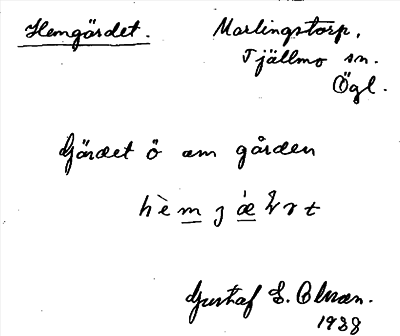 Hemgärdet.
Marlingstorp,
Tjällmo sn.
Ögl.
Gärdet ö om gården
Gustaf E.
1938